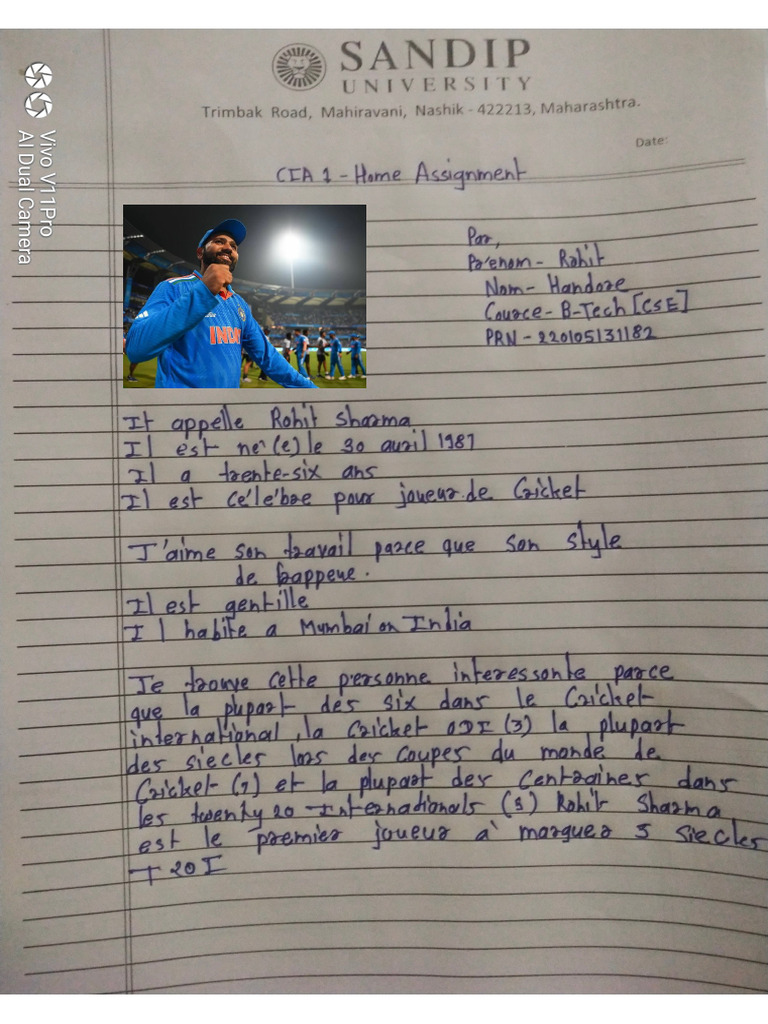 SANDIP
UNIVERSITY
Trimbak Road, Mahiravani, Nashik - 422213, Maharashtra.
Date:
CIA 1 - Home Assignment
Par,
Prénom - Rohit
Nom - Handore
Cource - B-Tech [CSE]
PRN - 220105131182
INDI
It appelle Rohit Sharma
Il est né (e) le 30 auril 1987
Il a trente-six ans
Il est cé'le'bre pour joueur de Cricket
J'aime son travail parce que son style
de frappeue.
Il est gentille
Il habite a Mumbai on India
Je trouve cette personne interessonte parce
que la plupart des six dans le Cricket
international, la Cricket ODI (3) la plupart
des siecles lors des coupes du monde de
Cricket (7) et la plupart des Centaines dans
les twenty 20 Internationals (5) Rohit Sharma
est le premier joueur a' marquer 5 siecles
T 20I
Vivo V11Pro
AI Dual Camera